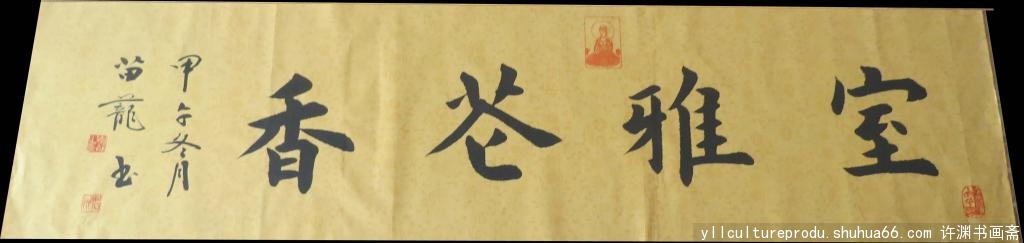 室雅花香
甲午冬月
苗蘢书
yllcultureprodu.shuhua66.com 许渊书画斋